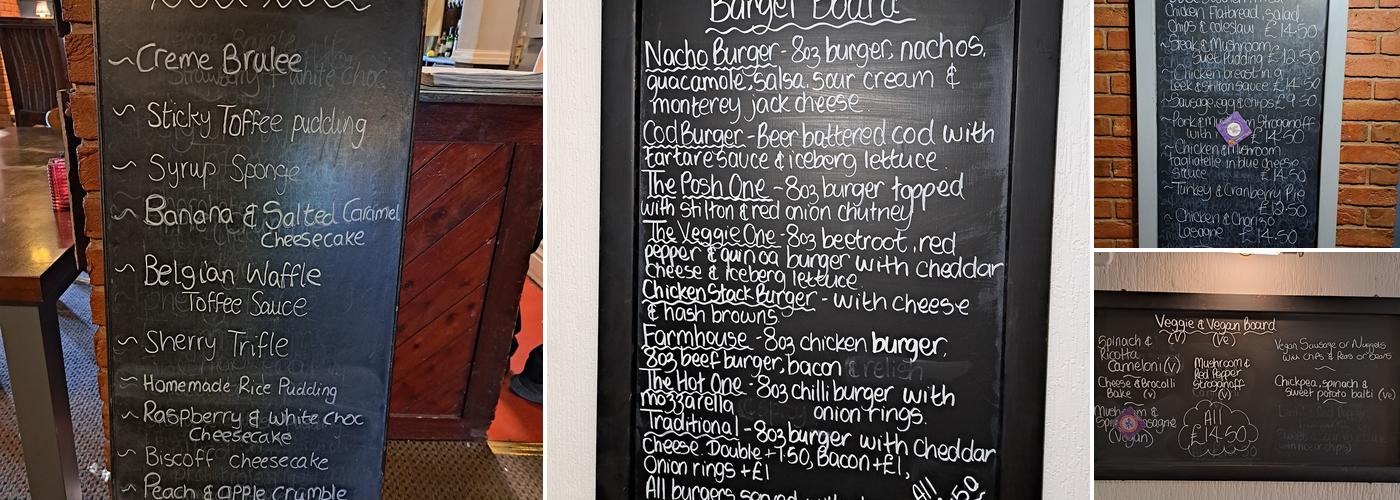 ~ Creme Brulee
~ Sticky Toffee pudding
~ Syrup Sponge
~ Banana & Salted Caramel
Cheesecake
~ Belgian Waffle
Toffee Sauce
~ Sherry Trifle
~ Homemade Rice Pudding
~ Raspberry & white choc
Cheesecake
~ Biscoff cheesecake
~ Peach & apple crumble
Burger Board
Nacho Burger - 8oz burger, nachos,
guacamole, salsa, sour cream &
monterey jack cheese.
Cod Burger - Beer battered cod with
tartare sauce & iceberg lettuce
The Posh One - 8oz burger topped
with stilton & red onion chutney
The Veggie One - 8oz beetroot, red
pepper & quinoa burger with cheddar
cheese & iceberg lettuce
Chicken Stack Burger - with cheese
& hash browns
Farmhouse - 8oz chicken burger,
8oz beef burger, bacon & relish
The Hot One - 8oz chilli burger with
mozzarella onion rings.
Traditional - 8oz burger with Cheddar
Cheese. Double +7.50, Bacon +£1,
Onion rings +£1
All burgers served with
All
Chicken Flatbread, salad,
Chips & coleslaw £14.50
~ Steak & Mushroom
Suet Pudding £13.50
~ Chicken breast in a
Leek & Stilton sauce £14.50
~ Sausage, egg & chips £9.50
with £14.50
~ Chicken & Mushroom
tagliatelle in blue cheese
sauce £14.50
~ Turkey & Cranberry Pie
£13.50
~ Chicken & Chorizo
Lasagne £14.50
Veggie & Vegan Board
(V) (Ve)
Spinach &
Ricotta
Cannelloni (V)
Cheese & Brocolli
Bake (V)
Mushroom &
Lasagne
(Vegan)
Mushroom &
Red Pepper
Stroganoff
(V)
All
£14.50
Vegan Sausage or Nuggets
with chips & Peas or beans
Chickpea, spinach &
sweet potato balti (Ve)